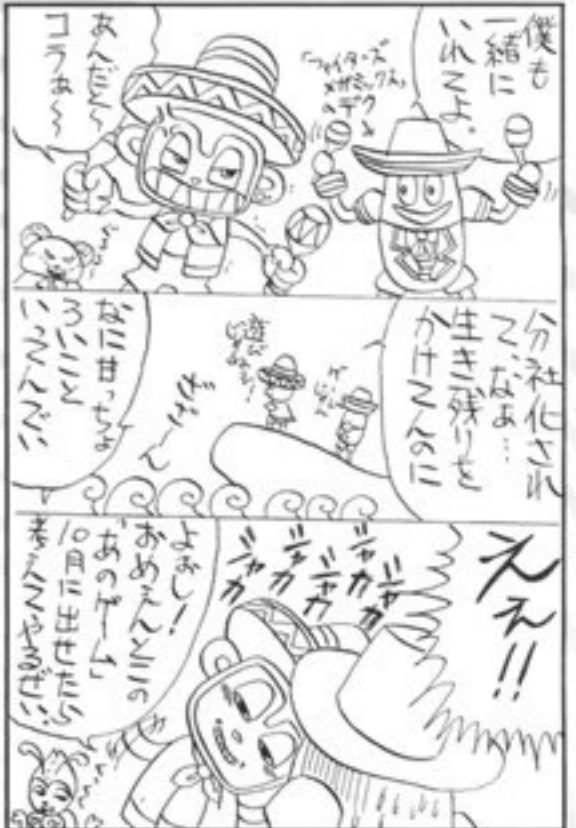 僕も
一緒に
いれてよ。
「ファイターズ
メガミックス」
のデク
あんだと〜
コラぁ〜
分社化され
て、なぁ…
生き残りを
かけてんのに
遊び
ざざーん
なに甘っちょ
ろいこと
いってんでい
ええ!!
ジャカ
ジャカ
ジャカ
ジャカ
ジャカ
よぉし!
おめえんとこの
「あのゲーム」
10月に出せたら
考えてやるぜい!